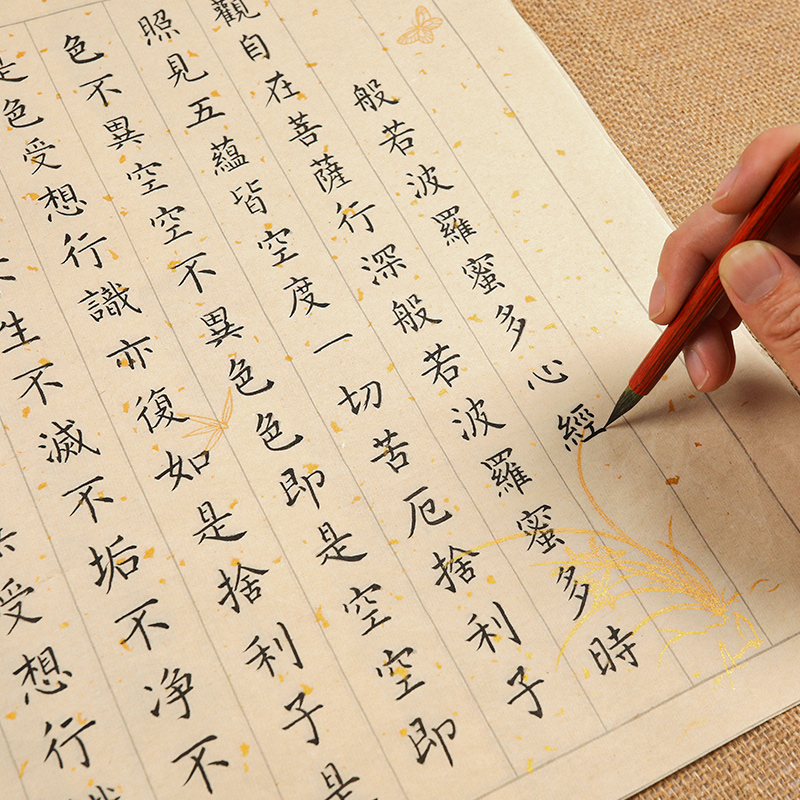 般若波羅蜜多心經
觀自在菩薩行深般若波羅蜜多時
照見五蘊皆空度一切苦厄捨利子
色不異空空不異色色即是空空即
是色受想行識亦復如是捨利子是
不生不滅不垢不净不
受想行